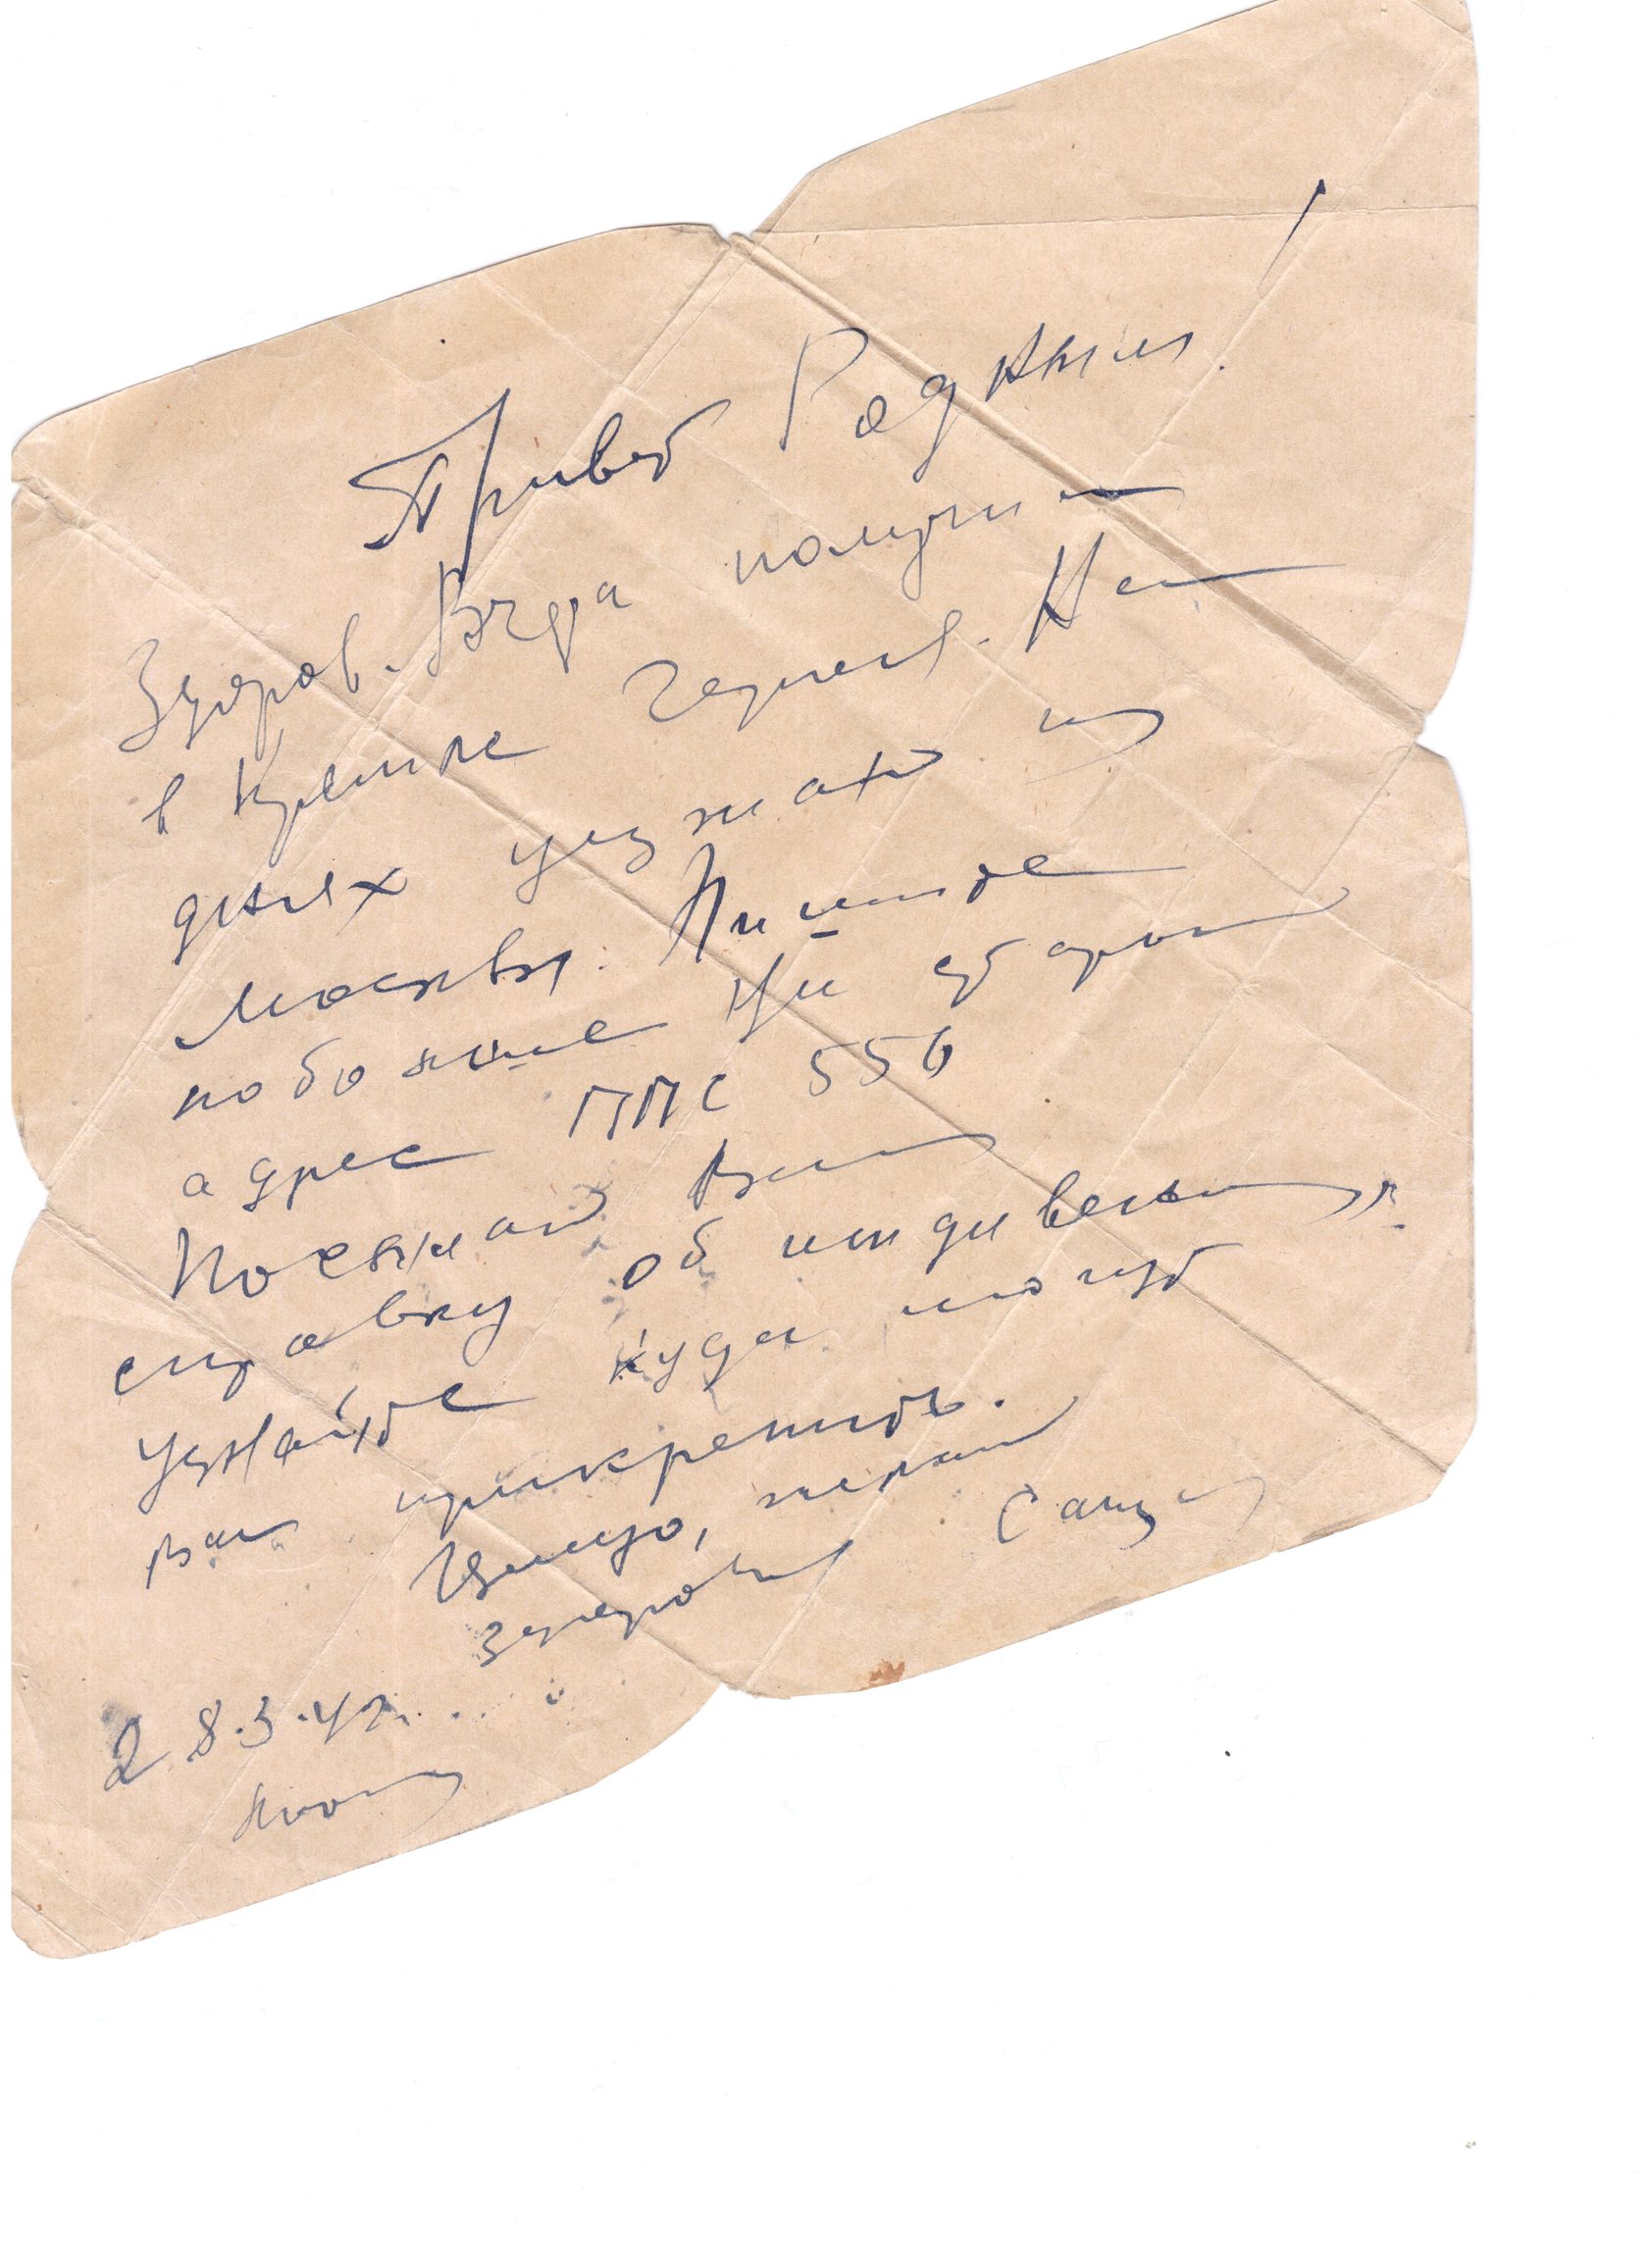 Привет Родным!
Здоров. Вчера получил
в Кремле Гернея. На
днях уезжаю из
Москвы. Пишите
побольше на старый
адрес ППС 556
Посылаю Вам
справку об иждивен
узнайте куда могут
вас прикрепить.
Целую, желаю
здоровья Саша
28.3.42г.